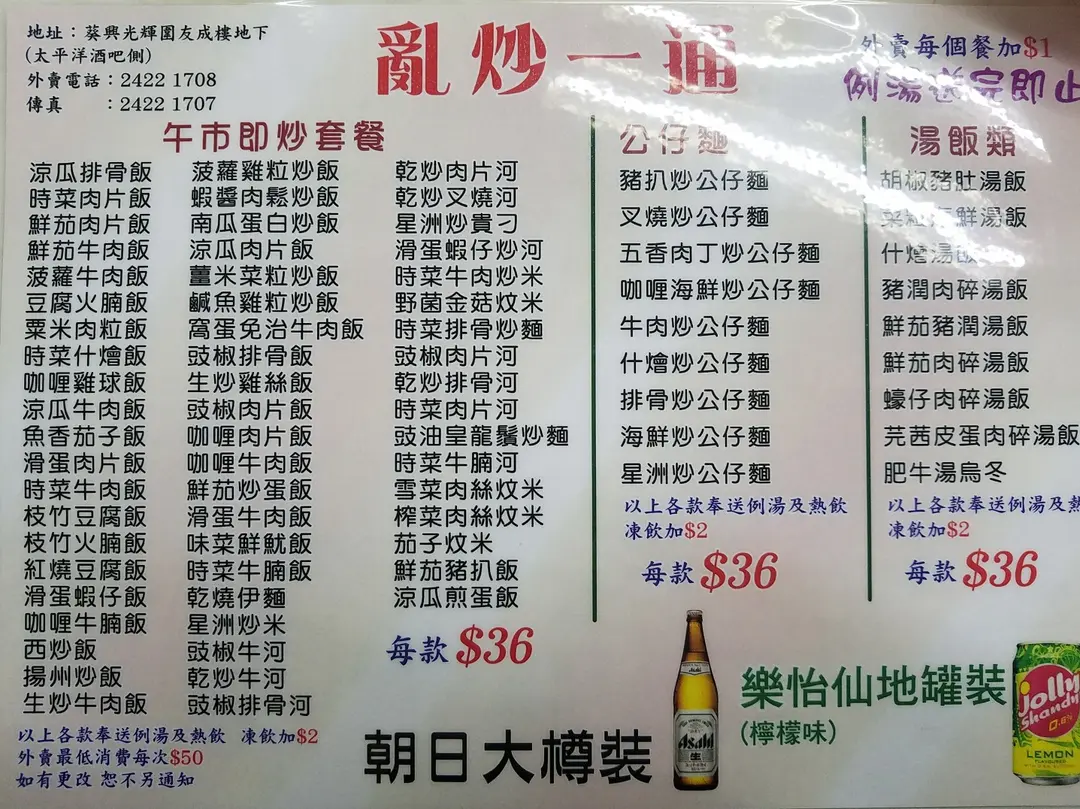 地址：葵興光輝圍友成樓地下
(太平洋酒吧側)
外賣電話：2422 1708
傳真　　：2422 1707
亂炒一通
外賣每個餐加$1
例湯送完即止
午市即炒套餐
涼瓜排骨飯
時菜肉片飯
鮮茄肉片飯
鮮茄牛肉飯
菠蘿牛肉飯
豆腐火腩飯
粟米肉粒飯
時菜什燴飯
咖喱雞球飯
涼瓜牛肉飯
魚香茄子飯
滑蛋肉片飯
時菜牛肉飯
枝竹豆腐飯
枝竹火腩飯
紅燒豆腐飯
滑蛋蝦仔飯
咖喱牛腩飯
西炒飯
揚州炒飯
生炒牛肉飯
菠蘿雞粒炒飯
蝦醬肉鬆炒飯
南瓜蛋白炒飯
涼瓜肉片飯
薑米菜粒炒飯
鹹魚雞粒炒飯
窩蛋免治牛肉飯
豉椒排骨飯
生炒雞絲飯
豉椒肉片飯
咖喱肉片飯
咖喱牛肉飯
鮮茄炒蛋飯
滑蛋牛肉飯
味菜鮮魷飯
時菜牛腩飯
乾燒伊麵
星洲炒米
豉椒牛河
乾炒牛河
豉椒排骨河
乾炒肉片河
乾炒叉燒河
星洲炒貴刁
滑蛋蝦仔炒河
時菜牛肉炒米
野菌金菇炆米
時菜排骨炒麵
豉椒肉片河
乾炒排骨河
時菜肉片河
豉油皇龍鬚炒麵
時菜牛腩河
雪菜肉絲炆米
榨菜肉絲炆米
茄子炆米
鮮茄豬扒飯
涼瓜煎蛋飯
每款 $36
以上各款奉送例湯及熱飲　凍飲加$2
外賣最低消費每次$50
如有更改 恕不另通知
公仔麵
豬扒炒公仔麵
叉燒炒公仔麵
五香肉丁炒公仔麵
咖喱海鮮炒公仔麵
牛肉炒公仔麵
什燴炒公仔麵
排骨炒公仔麵
海鮮炒公仔麵
星洲炒公仔麵
以上各款奉送例湯及熱飲
凍飲加$2
每款 $36
湯飯類
胡椒豬肚湯飯
菜粒海鮮湯飯
什燴湯飯
豬潤肉碎湯飯
鮮茄豬潤湯飯
鮮茄肉碎湯飯
蠔仔肉碎湯飯
芫茜皮蛋肉碎湯飯
肥牛湯烏冬
以上各款奉送例湯及熱
凍飲加$2
每款 $36
朝日大樽裝
Asahi
Asahi
生
樂怡仙地罐裝
(檸檬味)
jolly
shandy
0.8%
LEMON